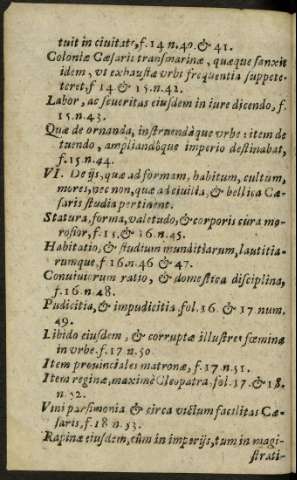 tuit in ciuitate, f. 14 n. 40. & 41.
Coloniæ Cæsaris transmarinæ, quæque sanxit
idem, vt exhaustæ vrbis frequentia suppete-
teret, f 14 & 15. n. 42.
Labor, ac seueritas eiusdem in iure dicendo, f.
15. n. 43.
Quæ de ornanda, instruendàque vrbe: item de
tuendo, ampliandòque imperio destinabat,
f. 15 n. 44.
VI. De ijs, quæ ad formam, habitum, cultum,
mores, nec non, quæ ad ciuilia, & bellica Cæ-
saris studia pertinent.
Statura, forma, valetudo, & corporis cura mo-
rosior, f. 15. & 16. n. 45.
Habitatio, & studium munditiarum, lautitia-
rumque, f 16. n. 46 & 47.
Conuiuiorum ratio, & domestica disciplina,
f. 16. n. 48.
Pudicitia, & impudicitia, fol. 16. & 17. num.
49.
Libido eiusdem, & corruptæ illustres fœminæ
in vrbe. f. 17 n. 50.
Item prouinciales matronæ, f. 17. n. 51.
Item reginæ, maximè Cleopatra. fol. 17. & 18.
n. 52.
Vini parsimonia & circa victum facilitas Cæ-
saris, f. 18 n. 53.
Rapinæ eiusdem, cùm in imperijs, tum in magi-
strati-